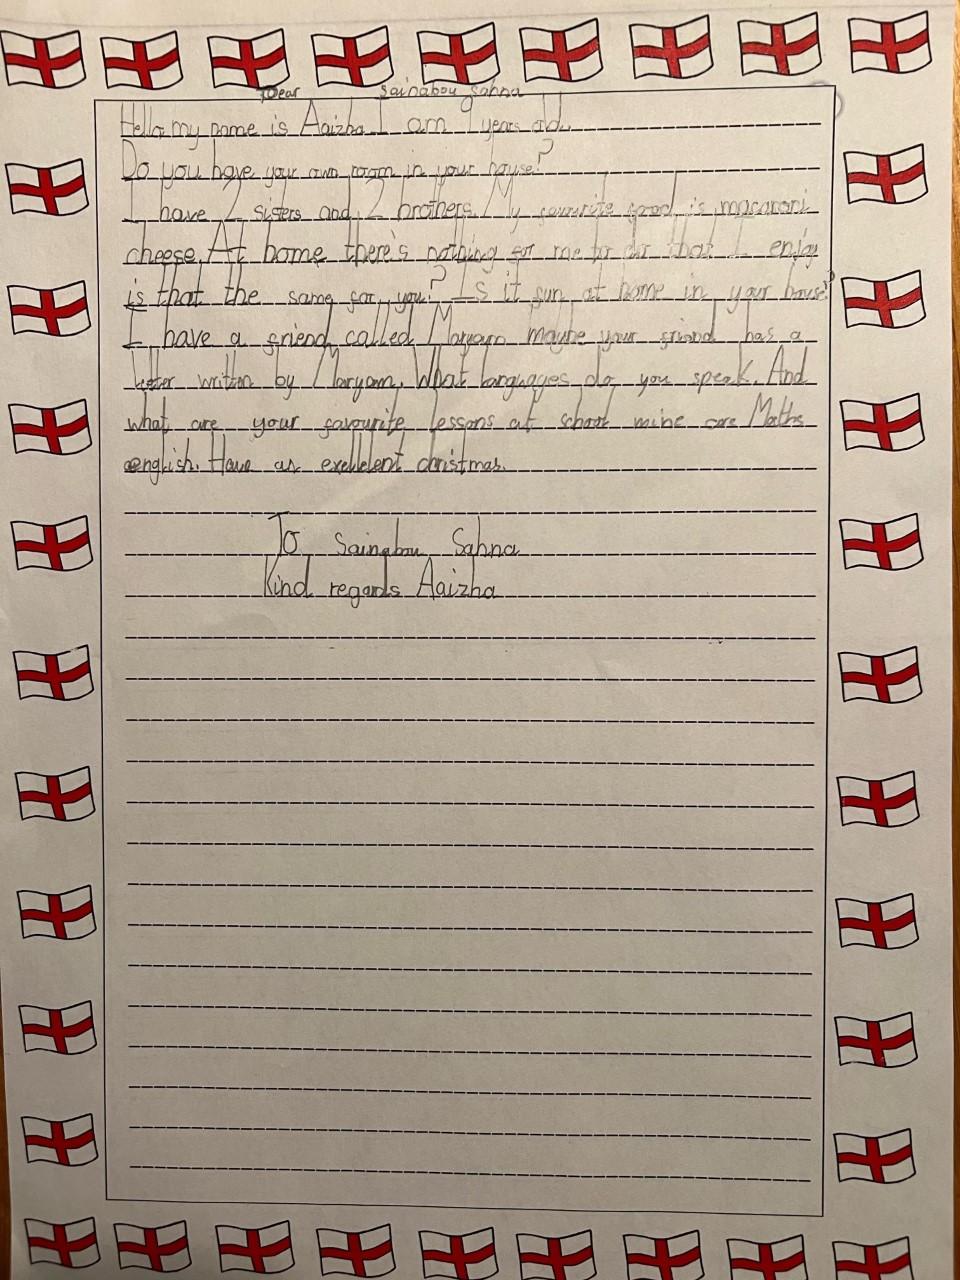 Dear Sainabou Sahna
Hello my name is Aaizha I am 9 years old.
Do you have your own room in your house?
I have 2 sisters and 2 brothers. My favourite food is macaroni
cheese. At home there's nothing for me to do that I enjoy
is that the same for you? Is it fun at home in your house?
I have a friend called Maryam maybe your friend has a
letter written by Maryam. What languages do you speak. And
what are your favourite lessons at school mine are Maths
english. Have an exellelent christmas.
To Sainabou Sahna
Kind regards Aaizha